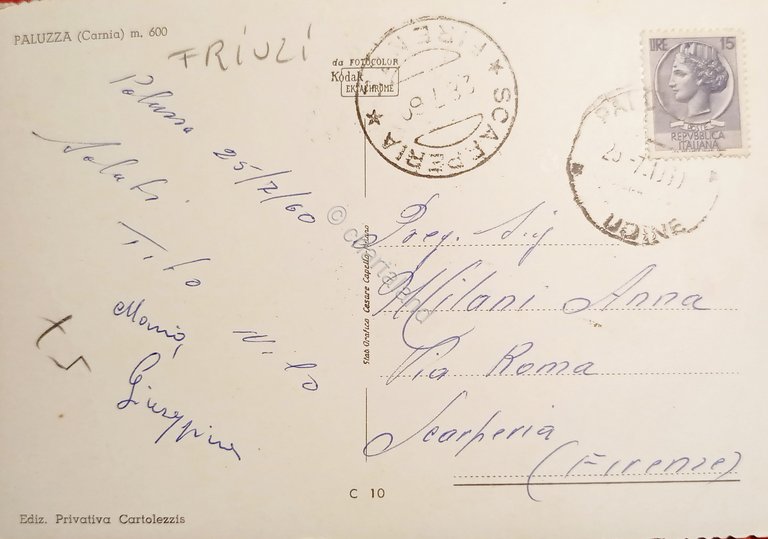 PALUZZA (Carnia) m. 600
FRIULI
da FOTOCOLOR
Kodak
EKTACHROME
SCARPERIA
FIRENZE
LIRE 15
POSTE
REPVBBLICA
ITALIANA
UDINE
Paluzza 25/7/60
Saluti
Tito Nilo
Maria,
Giuseppina
x5
Preg. Sig
Milani Anna
Via Roma
Scarperia
(Firenze)
Stab. Grafico Cesare Capello Milano
© cartaland
C 10
Ediz. Privativa Cartolezzis